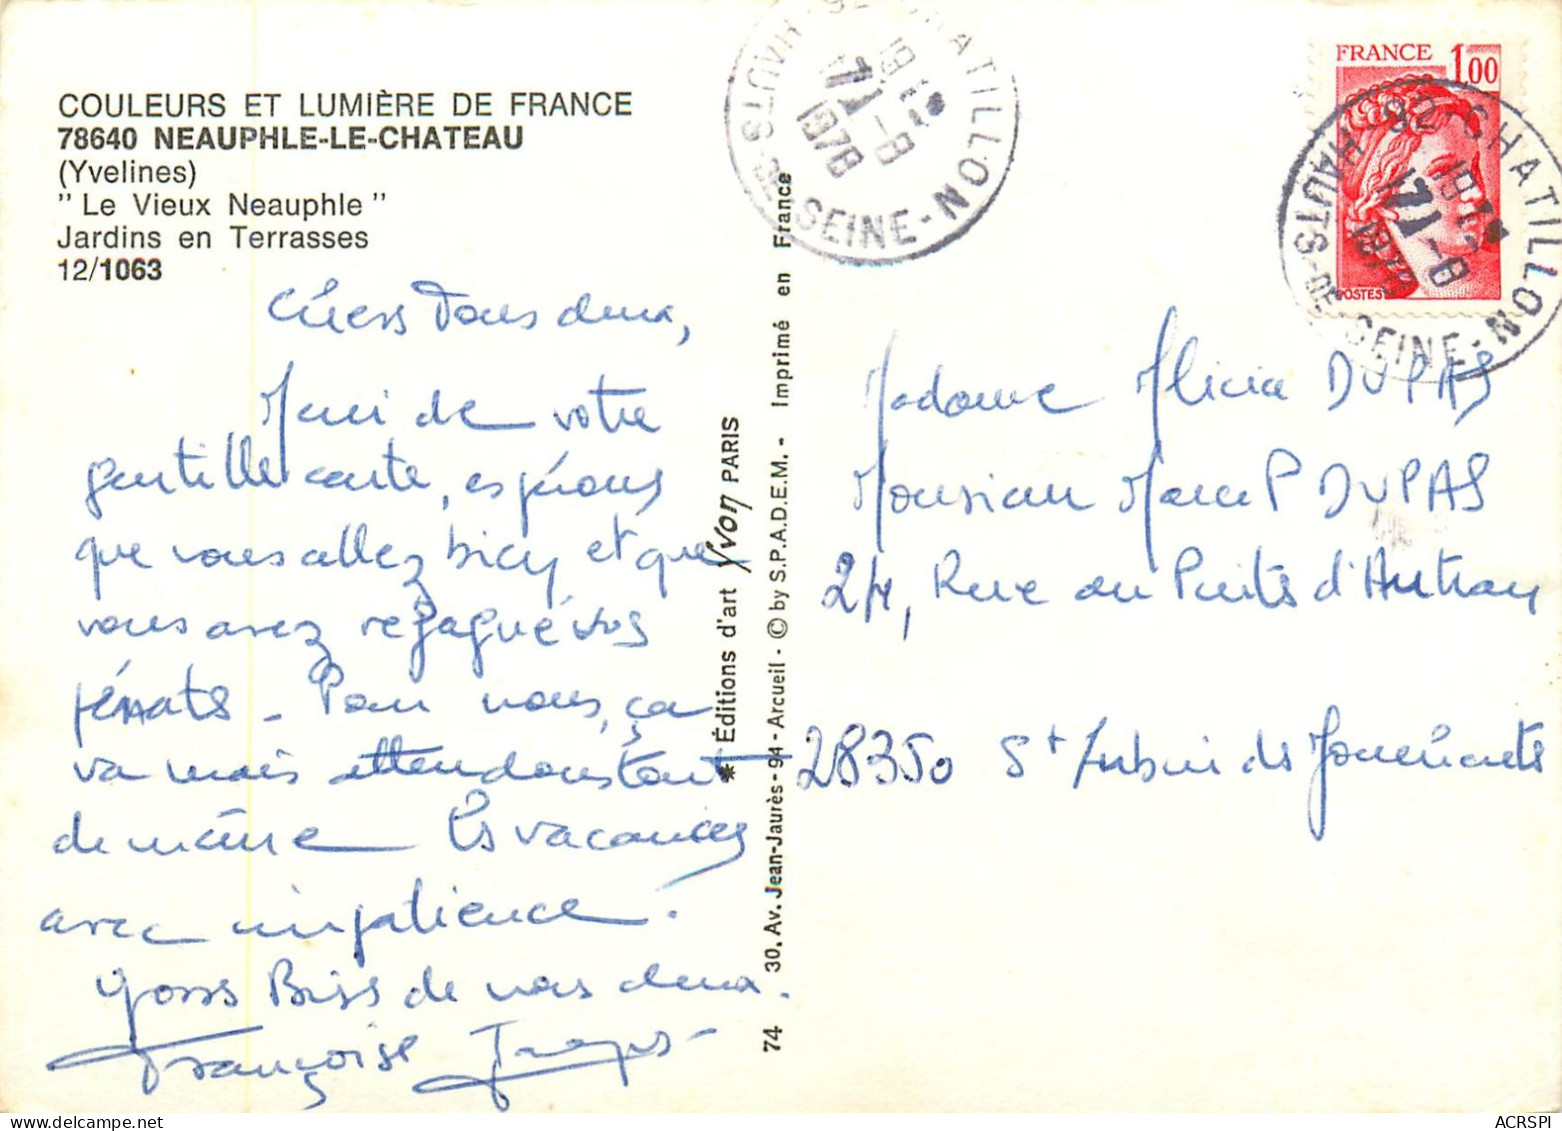 COULEURS ET LUMIÈRE DE FRANCE
78640 NEAUPHLE-LE-CHATEAU
(Yvelines)
" Le Vieux Neauphle "
Jardins en Terrasses
12/1063
Chers Tous deux,
Merci de votre
gentille carte, espérons
que vous allez bien et que
vous avez regagné vos
pénates - Pour nous, ça
va mais attendons tout
de même les vacances
avec impatience.
Gros Bises de nous deux.
Françoise
* Éditions d'art Yvon PARIS
74 30, Av. Jean-Jaurès - 94 - Arcueil - © by S.P.A.D.E.M. - Imprimé en France
92 CHATILLON
HAUTS-DE-SEINE
17-8
1978
FRANCE 1,00
POSTES
92 CHATILLON
HAUTS-DE-SEINE
17-8
1978
Madame Alicia DUPAS
Monsieur Marcel DUPAS
24, Rue du Puits d'Autray
28350 St Lubin des Joncherets
ACRSPI